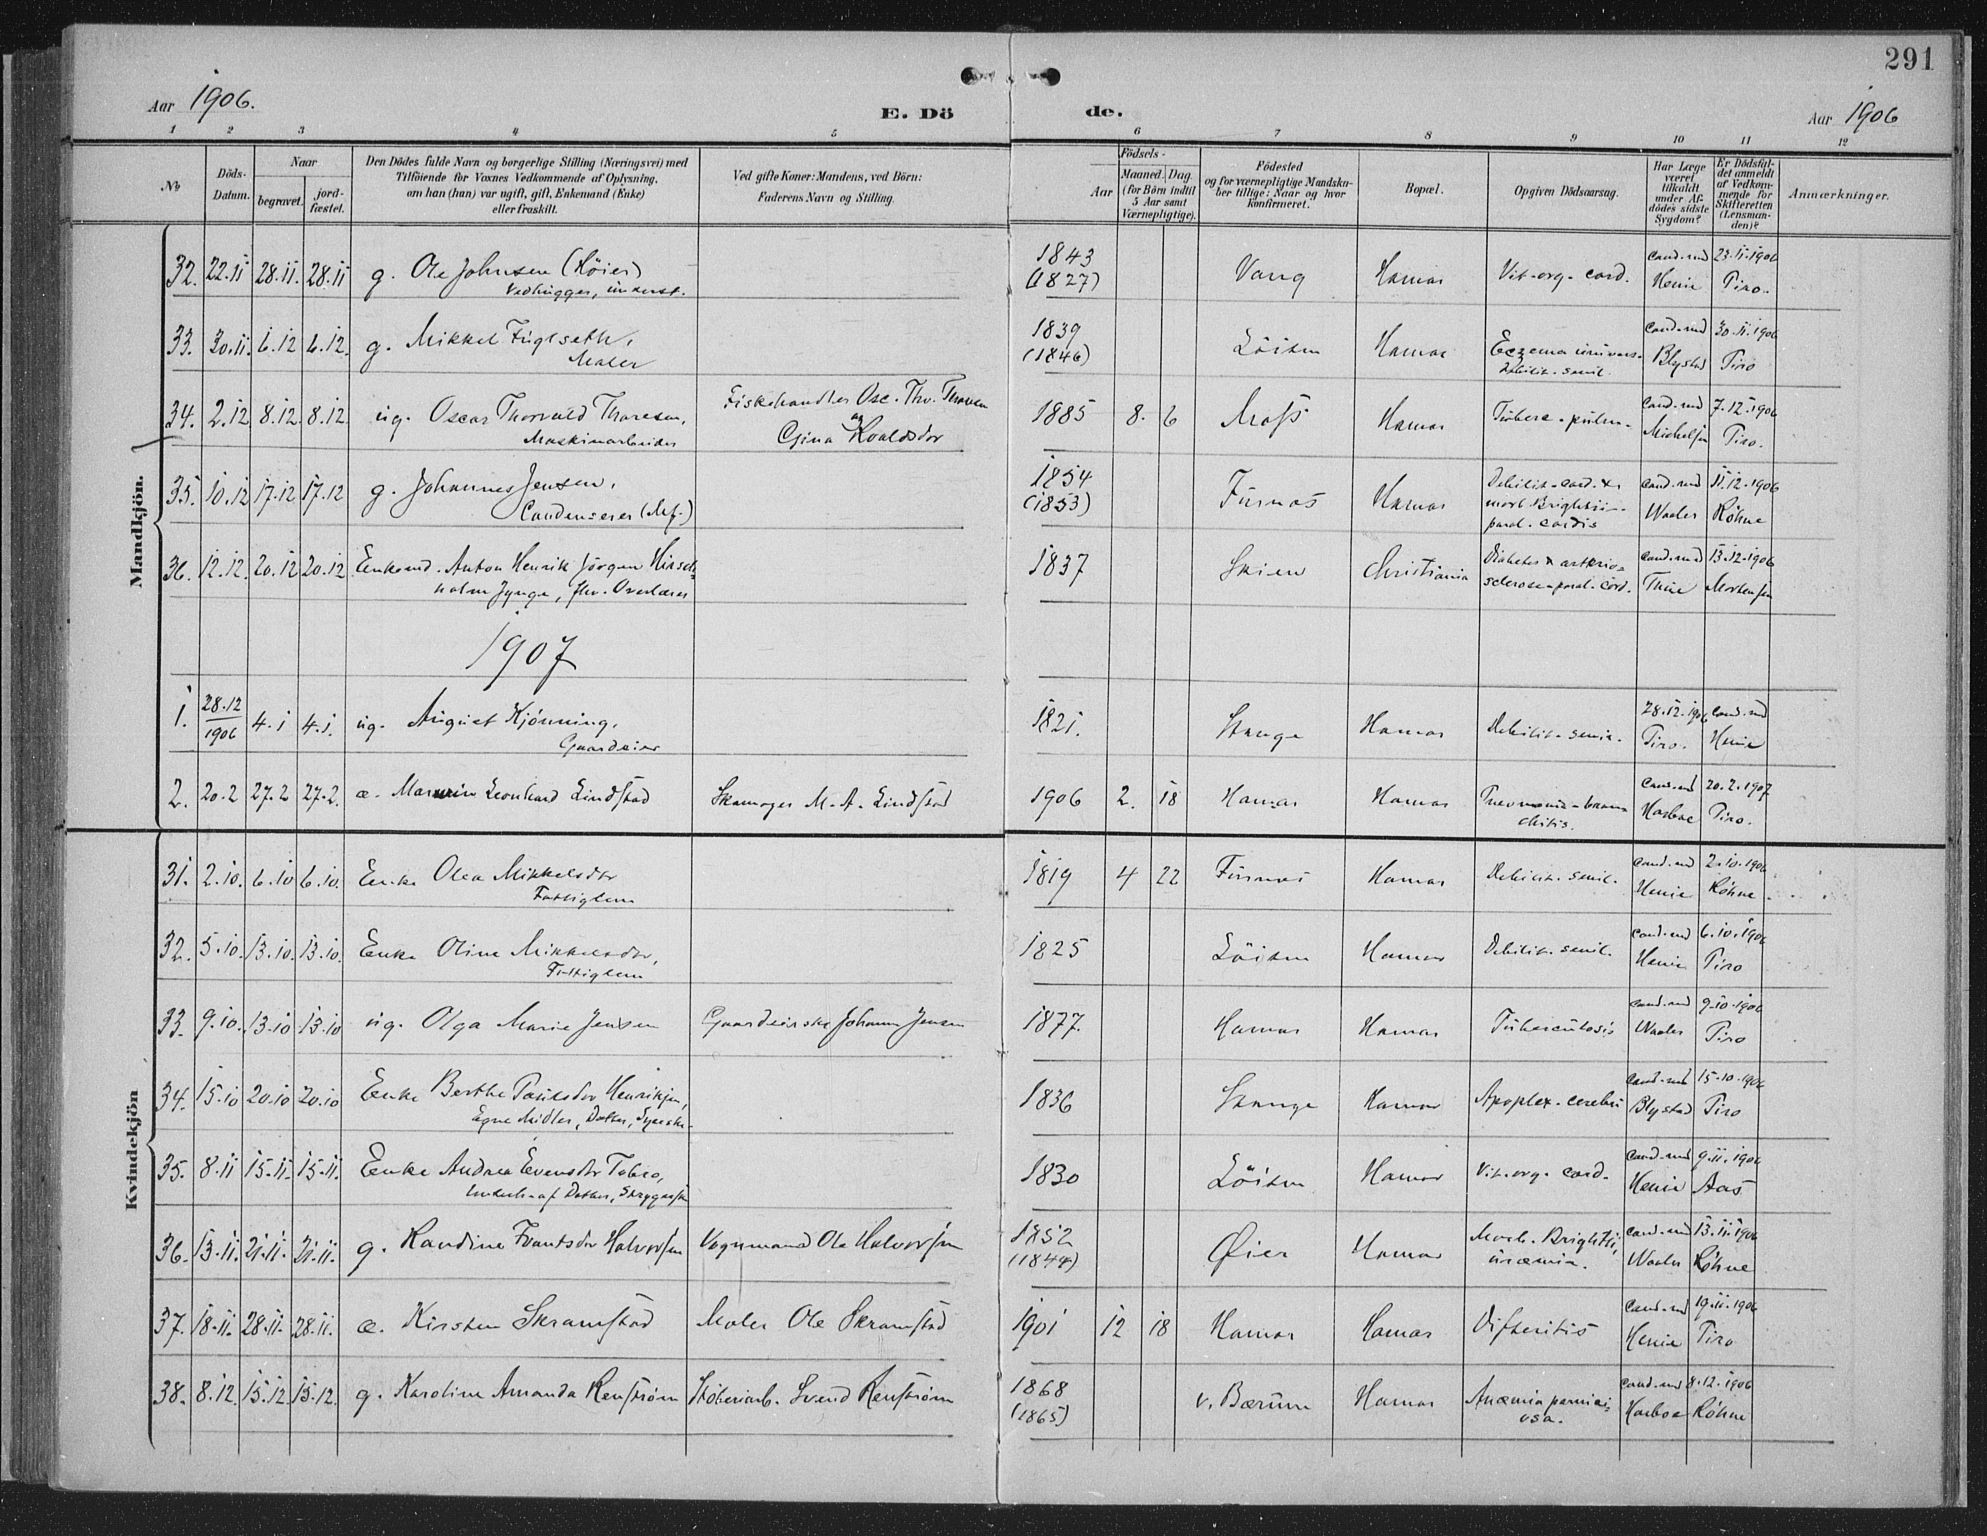 291
Aar 1906.
E. Dö
de.
Aar 1906
1 2 3 4 5 6 7 8 9 10 11 12
No
Döds-
Datum.
Naar
begravet.
jord-
fæstet.
Den Dödes fulde Navn og borgerlige Stilling (Næringsvei) med
Tilföiende for Voxnes Vedkommende af Oplysning,
om han (hun) var ugift, gift, Enkemand (Enke)
eller fraskilt.
Ved gifte Koner: Mandens, ved Börn:
Faderens Navn og Stilling.
Födsels-
Aar
Maaned. Dag.
(for Börn indtil
5 Aar samt
Værnepligtige).
Födested
og for værnepligtige Mandskaber
tillige: Naar og hvor
Konfirmeret.
Bopæl.
Opgiven Dödsaarsag.
Har Læge
været
tilkaldt
under Af-
dödes sidste
Sygdom?
Er Dödsfal-
det anmeldt
af Vedkom-
mende for
Skifteretten
(Lensman-
den)?
Anmærkninger.
Mandkjön.
32. 22.11 28.11. 28.11 g. Ole Johnsen (Höier) 1843 Vang Hamar Vit. org. cord. cand. med 23.11.1906
Vedhugger, underst. (1827) Henie Tiro.
33. 30.11. 6.12 6.12. g. Mikkel Fuglseth, 1839 Löiten Hamar Eczema univers. cand. med 30.11.1906
Maler (1846) Debilit. senil. Blystad Tiro
34. 2.12 8.12. 8.12. ug. Oscar Thorvald Thoresen, Fiskehandler Osc. Thv. Thoresen 1885 8. 6 Moss Hamar Tuberc. pulm. cand. med 7.12.1906
Maskinarbeider og Gina Roaldsdtr Michelsen Tiro.
35. 10.12 17.12 17.12 g. Johannes Jensen, 1854 Furnes Hamar Debilit. cord. & cand. med 11.12.1906
Condenserer (Mf.) (1853) morb. Brightii - Waaler Röhne
paral. cordis
36. 12.12. 20.12 20.12 Enkemd. Anton Henrik Jörgen Hirsch- 1837 Skien Christiania Diabetes & arterio- cand. med 13.12.1906
holm Jynge, fhv. Overlærer sclerose - paral. cord. Thue Mortensen
1907
1. 28.12/1906 4.1 4.1. ug. August Kjönning, 1821. Stange Hamar Debilit. senil. 28.12.1906 cand. med
Gaardeier Tiro. Henie
2. 20.2 27.2 27.2. æ. Leonhard Lindstad Skomager M. A. Lindstad 1906 2. 18 Hamar Hamar Pneumonia - bron- cand. med 20.2.1907
chitis. Harboe Tiro.
Kvindekjön
31. 2.10. 6.10 6.10. Enke Olea Mikkelsdtr 1819 4 22 Furnes Hamar Debilit. senil. cand. med 2.10.1906
Fattiglem Henie Röhne.
32. 5.10. 13.10. 13.10. Enke Oline Mikkelsdtr, 1825 Löiten Hamar Debilit. senil. cand. med 6.10.1906
Fattiglem Henie Tiro
33. 9.10. 13.10 13.10 ug. Olga Marie Jensen Gaardeierske Johanne Jensen 1877. Hamar Hamar Tuberculosis cand. med 9.10.1906
Waaler Tiro
34. 15.10 20.10 20.10 Enke Berthe Paulsdtr Henriksen, 1836 Stange Hamar Apoplex. cerebri cand. med 15.10.1906
Egne Midler, Datter, Syerske. Blystad Tiro
35. 8.11 15.11. 15.11. Enke Andrea Evensdtr Tobro, 1830 Löiten Hamar Vit. org. cord. cand. med 9.11.1906
Underh. af Datter, Henie Aas
36. 13.11. 21.11. 21.11. g. Randine Frantsdtr Halvorsen Vognmand Ole Halvorsen 1852 Öier Hamar Morb. Brightii, cand. med 13.11.1906
(1844) uræmia. Waaler Röhne
37. 18.11. 28.11. 28.11. æ. Kirsten Skramstad Maler Ole Skramstad 1901 12 18 Hamar Hamar Difteritis cand. med 19.11.1906
Henie Tiro
38. 8.12. 15.12 15.12. g. Karoline Amanda Renström Stöberiarb. Svend Renström 1868 v. Bærum Hamar Anæmia pernici- cand. med 8.12.1906
(1865) osa. Harboe Röhne